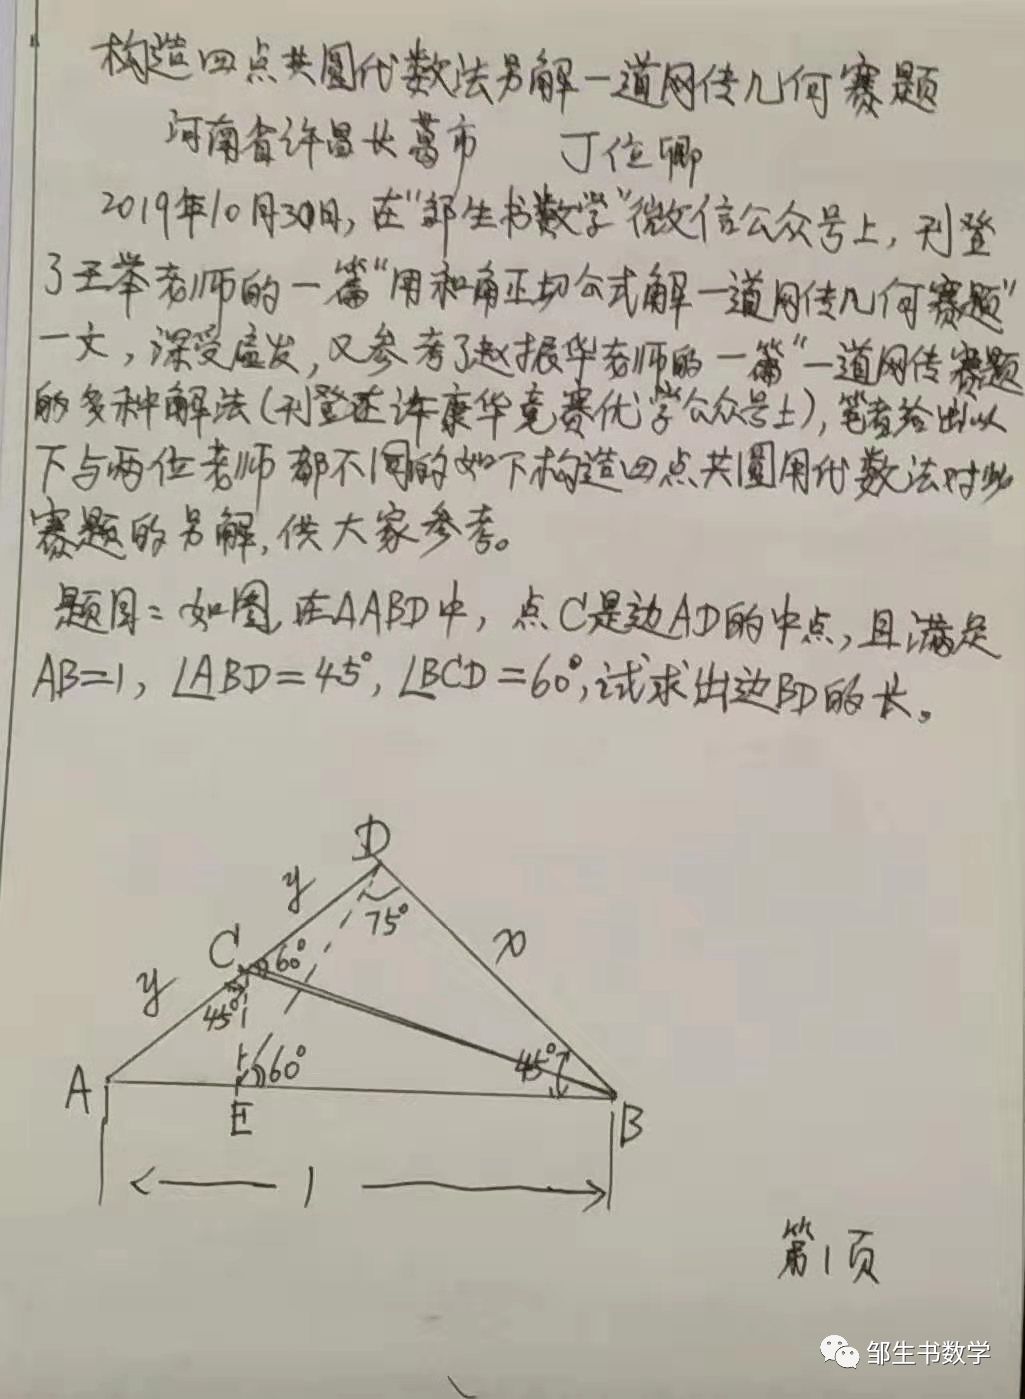 构造四点共圆代数法另解一道网传几何赛题
河南省许昌长葛市 丁位卿
2019年10月30日,在"邹生书数学"微信公众号上,刊登
了王举老师的一篇"用和角正切公式解一道网传几何赛题"
一文,深受启发,又参考了赵振华老师的一篇"一道网传赛题
的多种解法(刊登在许康华竞赛优学公众号上),笔者给出以
下与两位老师都不同的如下构造四点共圆用代数法对此
赛题的另解,供大家参考。
题目:如图,在△ABD中,点C是边AD的中点,且满足
AB=1,∠ABD=45°,∠BCD=60°,试求出边BD的长。
D
y
75°
C
60°
x
y
45°
A
60°
45°
E
B
1
第1页
邹生书数学